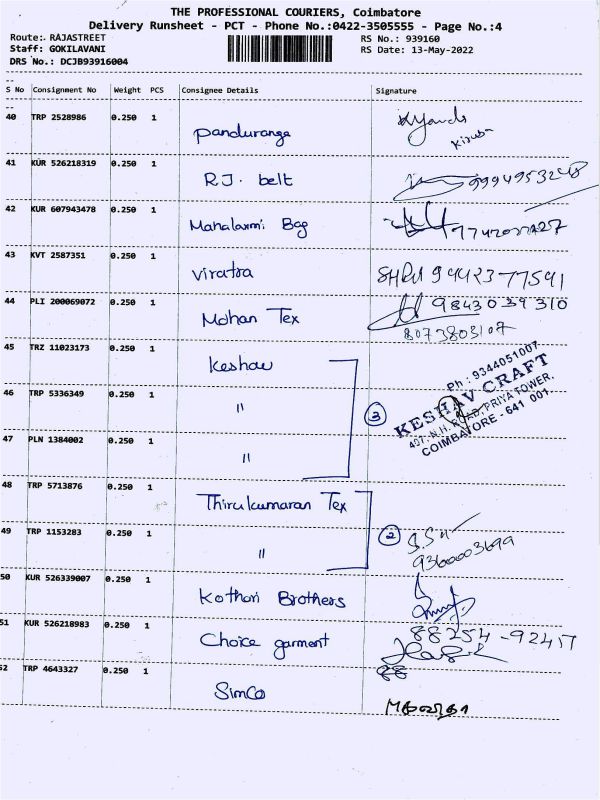 THE PROFESSIONAL COURIERS, Coimbatore
Delivery Runsheet - PCT - Phone No.:0422-3505555 - Page No.:4
Route: RAJASTREET
RS No.: 939160
Staff: GOKILAVANI
RS Date: 13-May-2022
DRS No.: DCJB93916004
S No Consignment No Weight PCS Consignee Details Signature
40 TRP 2528986 0.250 1 Panduranga
41 KUR 526218319 0.250 1 RJ. belt 9994953248
42 KUR 607943478 0.250 1 Mahalaxmi Bag
43 KVT 2587351 0.250 1 Viratra 9442377591
44 PLI 200069072 0.250 1 Mohan Tex 9843039310
8073803107
45 TRZ 11023173 0.250 1 Keshav
46 TRP 5336349 0.250 1 "
47 PLN 1384002 0.250 1 "
3
Ph : 9344051007
KESHAV CRAFT
437, N.H. ROAD, PRIYA TOWER,
COIMBATORE - 641 001.
48 TRP 5713876 0.250 1 Thirukumaran Tex
49 TRP 1153283 0.250 1 "
2
9360003699
50 KUR 526339007 0.250 1 Kothari Brothers
51 KUR 526218983 0.250 1 Choice garment
52 TRP 4643327 0.250 1 SimCo